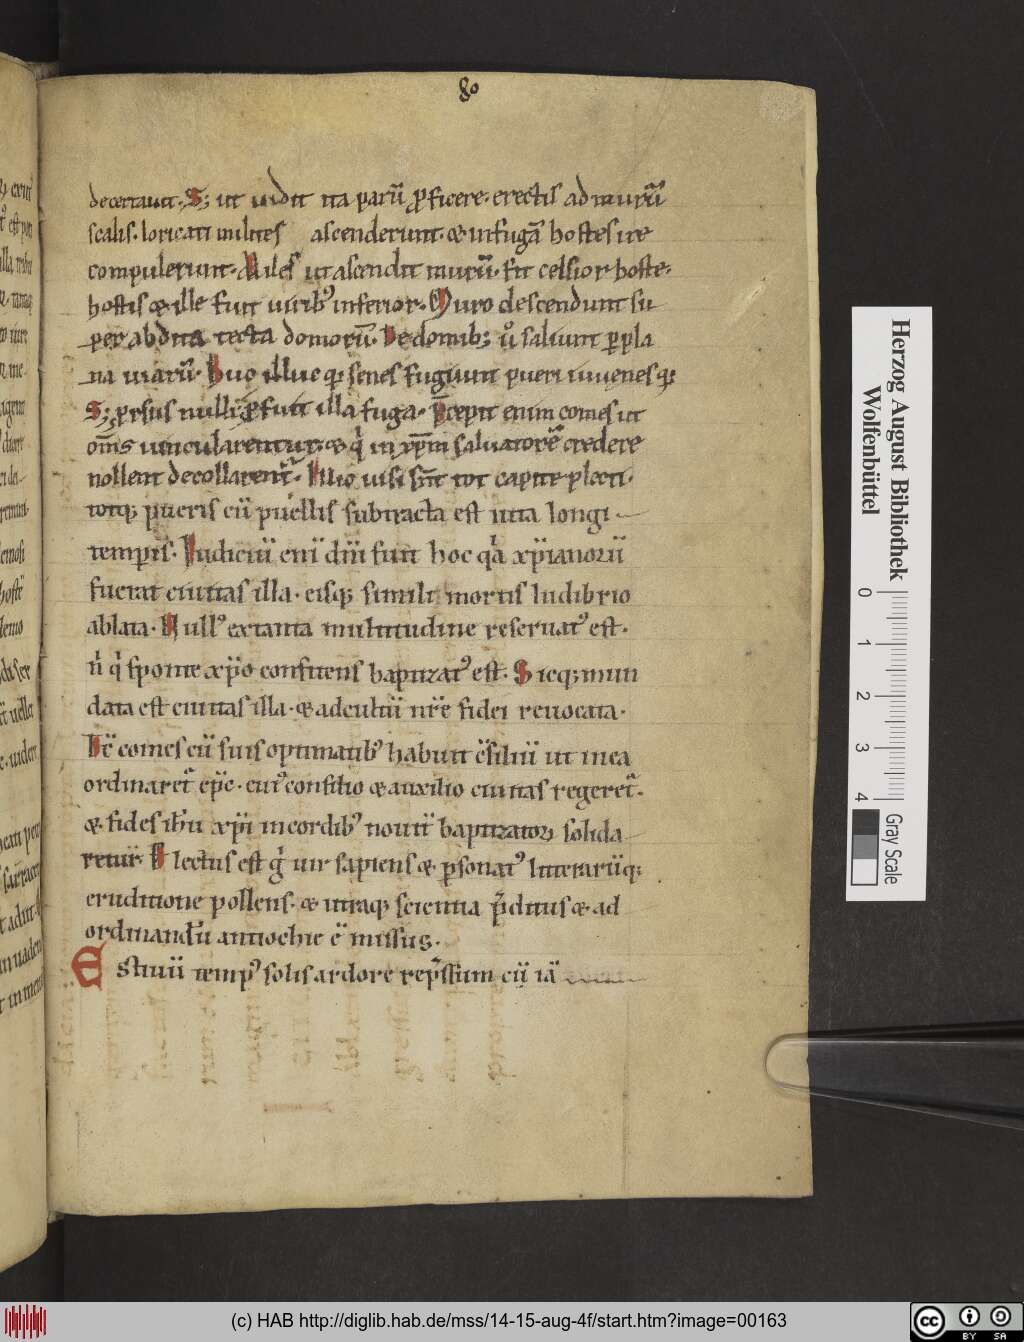 80
decertauit. S; ut uidit ita parū ꝓficere. erectis ad murū
scalis. loricati milites ascenderunt. & in fugā hostes ire
compulerunt. Miles ut ascendit murū. fit celsior hoste.
hostis & ille fuit uiribꝰ inferior. Muro descendunt su
per abdita tecta domorū. De domib; ů saliunt ꝑ pla
na uiarū. Huc illuc q; senes fugiunt pueri iuuenes q;
S; ꝓrsus nulli ꝓfuit illa fuga. P̄cepit enim comes ut
om̄s uincularentur. & q̇ in xp̄m saluatorē credere
nollent decollarent᷑. Illic uisi sūt tot capite plecti.
totq; pueris cū puellis subtracta est uita longi
temporis. Iudiciū eni dn̄i fuit hoc q̇a xp̄ianorū
fuerat ciuitas illa. eisq; simili mortis ludibrio
ablata. Nullꝰ ex tanta multitudine reseruatꝰ est.
n̄ q̇ sponte xp̄o confitens baptizatꝰ est. Sicq; mun
data est ciuitas illa. & ad cultū nr̄e fidei reuocata.
Hc̄ comes cū suis optimatibꝰ habuit c̄siliū ut in ea
ordinaret᷑ ep̄c. cuiꝰ consilio & auxilio ciuitas regeret᷑.
& fides ih̄u xp̄i in cordibꝰ nouit᷑ baptizatoꝝ solida
retur. Electus est q̇ uir sapiens & ꝑsonatꝰ litterarūq;
eruditione pollens. & utraq; scientia p̄ditus & ad
ordinandū antiochie ē missus.
Estiuū tempꝰ solis ardore rep̄ssum cū iā
Herzog August Bibliothek
Wolfenbüttel
0
1
2
3
4
Gray Scale
(c) HAB http://diglib.hab.de/mss/14-15-aug-4f/start.htm?image=00163
cc
BY SA